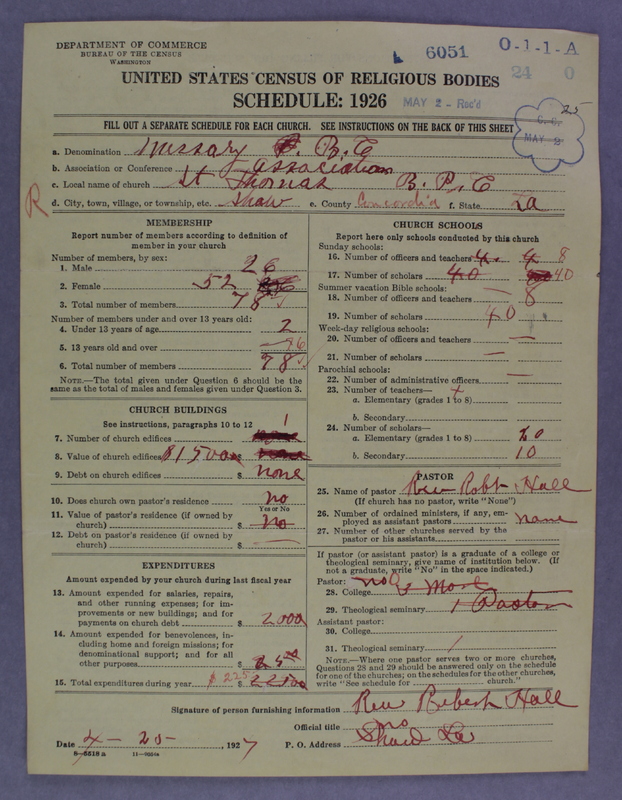 DEPARTMENT OF COMMERCE
BUREAU OF THE CENSUS
WASHINGTON
6051
O-1-1-A
24 0
UNITED STATES CENSUS OF RELIGIOUS BODIES
SCHEDULE: 1926
MAY 2 - Rec'd
25
C. C.
MAY 2
FILL OUT A SEPARATE SCHEDULE FOR EACH CHURCH. SEE INSTRUCTIONS ON THE BACK OF THIS SHEET
a. Denomination Missary B. C
b. Association or Conference association
c. Local name of church St Thomas B. P. C
R
d. City, town, village, or township, etc. Shaw e. County Concordia f. State La
MEMBERSHIP
Report number of members according to definition of
member in your church
Number of members, by sex:
1. Male 26
2. Female 52
3. Total number of members 78
Number of members under and over 13 years old:
4. Under 13 years of age 2
5. 13 years old and over 76
6. Total number of members 78
NOTE.—The total given under Question 6 should be the
same as the total of males and females given under Question 3.
CHURCH BUILDINGS
See instructions, paragraphs 10 to 12
7. Number of church edifices 1
8. Value of church edifices $1500
9. Debt on church edifices $ none
10. Does church own pastor's residence no
Yes or No
11. Value of pastor's residence (if owned by
church) $ no
12. Debt on pastor's residence (if owned by
church) $ —
EXPENDITURES
Amount expended by your church during last fiscal year
13. Amount expended for salaries, repairs,
and other running expenses; for im-
provements or new buildings; and for
payments on church debt $ 2000
14. Amount expended for benevolences, in-
cluding home and foreign missions; for
denominational support; and for all
other purposes $
15. Total expenditures during year $ 225 $
CHURCH SCHOOLS
Report here only schools conducted by this church
Sunday schools:
16. Number of officers and teachers 8
17. Number of scholars 40 40
Summer vacation Bible schools:
18. Number of officers and teachers — 8
19. Number of scholars 40
Week-day religious schools:
20. Number of officers and teachers —
21. Number of scholars —
Parochial schools:
22. Number of administrative officers —
23. Number of teachers—
a. Elementary (grades 1 to 8)
b. Secondary
24. Number of scholars—
a. Elementary (grades 1 to 8) 20
b. Secondary 10
PASTOR
25. Name of pastor Rev Robt Hall
(If church has no pastor, write "None")
26. Number of ordained ministers, if any, em-
ployed as assistant pastors none
27. Number of other churches served by the
pastor or his assistants
If pastor (or assistant pastor) is a graduate of a college or
theological seminary, give name of institution below. (If
not a graduate, write "No" in the space indicated.)
Pastor: no
28. College
29. Theological seminary 1 Pastor
Assistant pastor:
30. College
31. Theological seminary
NOTE.—Where one pastor serves two or more churches,
Questions 28 and 29 should be answered only on the schedule
for one of the churches; on the schedules for the other churches,
write "See schedule for church."
Signature of person furnishing information Rev Hall
Official title no
Date 4 - 25 -, 1927 P. O. Address Shaw La
8-5518 a